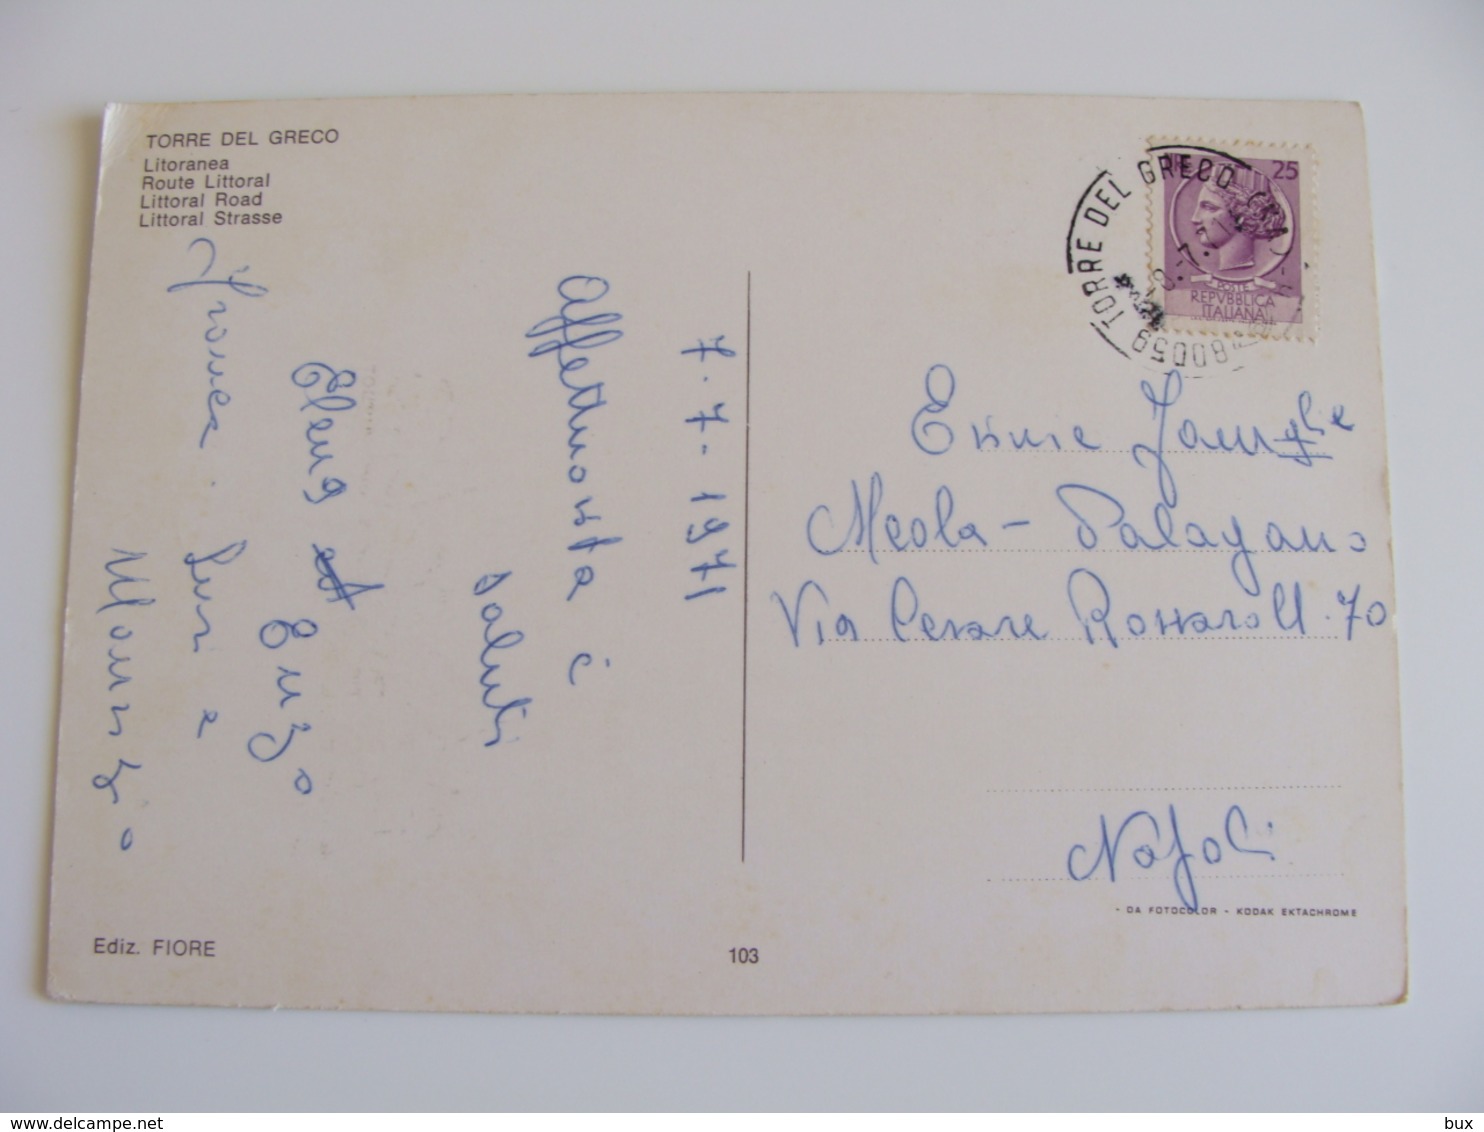 TORRE DEL GRECO
Litoranea
Route Littoral
Littoral Road
Littoral Strasse
7-7-1971
Affettuosità e
saluti
Elena
Enzo
Luisi e
Maurizio
80059 TORRE DEL GRECO (NA)
25
POSTE
REPVBBLICA
ITALIANA
Meola - Palagano
Via Cesare Rossaroll. 70
Napoli
- DA FOTOCOLOR - KODAK EKTACHROME
Ediz. FIORE
103
delcampe.net
bux